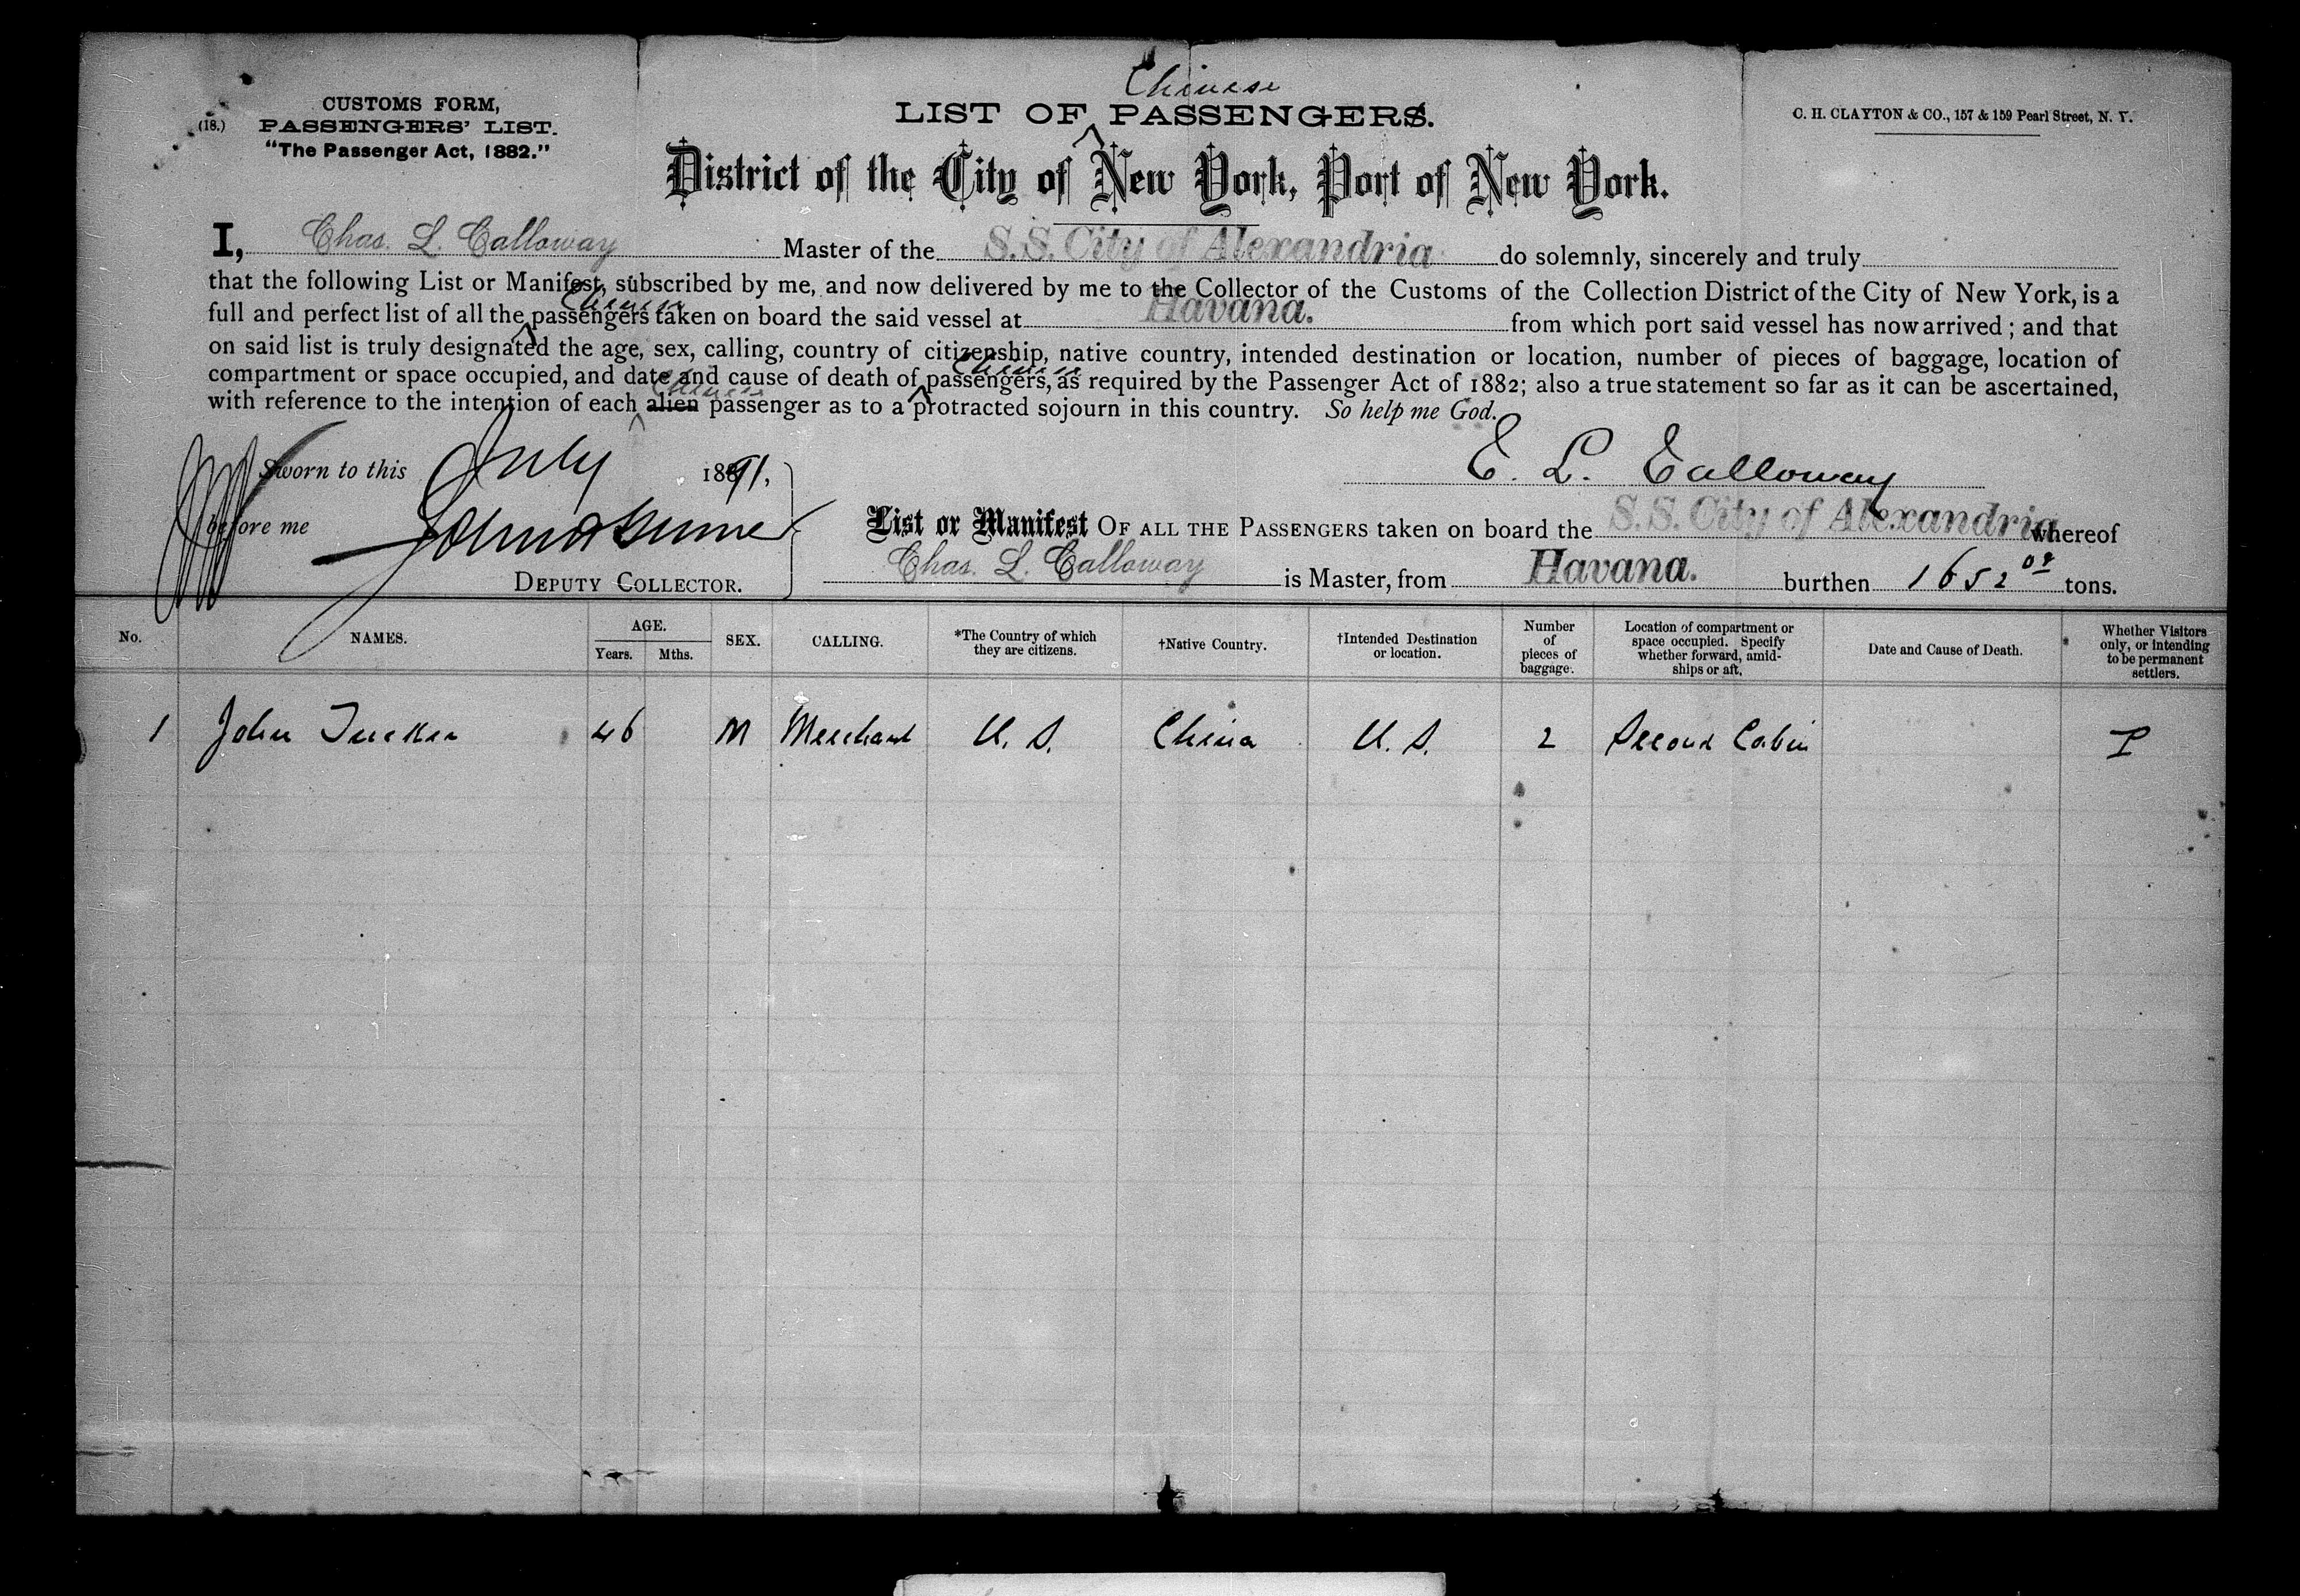 Chinese
CUSTOMS FORM,
(18.) PASSENGERS' LIST.
"The Passenger Act, 1882."
LIST OF PASSENGERS.
C. H. CLAYTON & CO., 157 & 159 Pearl Street, N. Y.
District of the City of New York, Port of New York.
I, Chas. L. Calloway Master of the S.S. City of Alexandria do solemnly, sincerely and truly
that the following List or Manifest, subscribed by me, and now delivered by me to the Collector of the Customs of the Collection District of the City of New York, is a
Chinese
full and perfect list of all the passengers taken on board the said vessel at Havana. from which port said vessel has now arrived; and that
on said list is truly designated the age, sex, calling, country of citizenship, native country, intended destination or location, number of pieces of baggage, location of
Chinese
compartment or space occupied, and date and cause of death of passengers, as required by the Passenger Act of 1882; also a true statement so far as it can be ascertained,
Chinese
with reference to the intention of each alien passenger as to a protracted sojourn in this country. So help me God.
Sworn to this July 1891,
E. L. Calloway
before me
DEPUTY COLLECTOR.
List or Manifest OF ALL THE PASSENGERS taken on board the S.S. City of Alexandria whereof
Chas. L. Calloway is Master, from Havana. burthen 1652 tons.
No. NAMES. AGE. Years. Mths. SEX. CALLING. *The Country of which they are citizens. †Native Country. †Intended Destination or location. Number of pieces of baggage. Location of compartment or space occupied. Specify whether forward, amidships or aft. Date and Cause of Death. Whether Visitors only, or intending to be permanent settlers.
1 John Tucker 46 M Merchant U. S. China U. S. 2 Second Cabin P